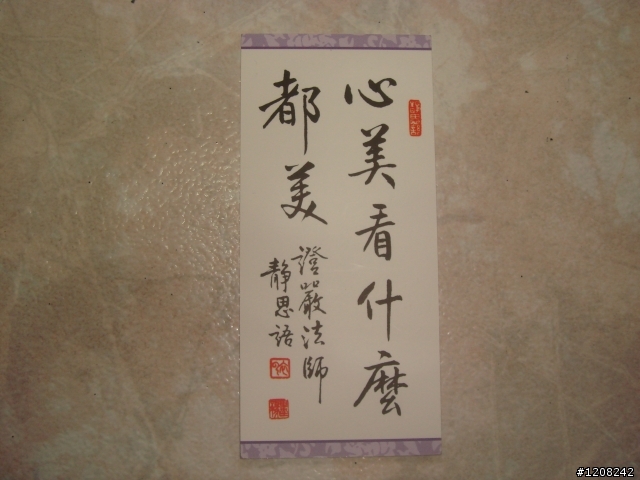 心美看什麼
都美
證嚴法師
靜思語
#1208242